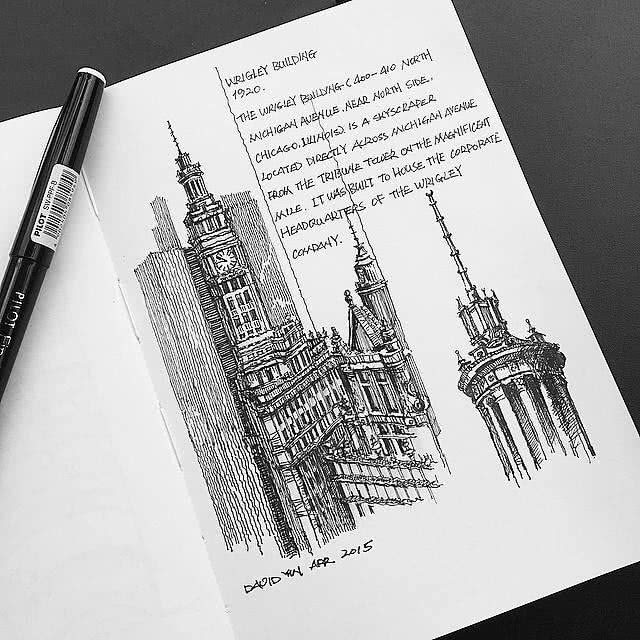 WRIGLEY BUILDING
1920.
THE WRIGLEY BUILDING (400-410 NORTH
MICHIGAN AVENUE. NEAR NORTH SIDE.
CHICAGO. ILLINOIS). IS A SKYSCRAPER
LOCATED DIRECTLY ACROSS MICHIGAN AVENUE
FROM THE TRIBUNE TOWER ON THE MAGNIFICENT
MILE. IT WAS BUILT TO HOUSE THE CORPORATE
HEADQUARTERS OF THE WRIGLEY
COMPANY.
DAVID APR 2015
PILOT
PILOT